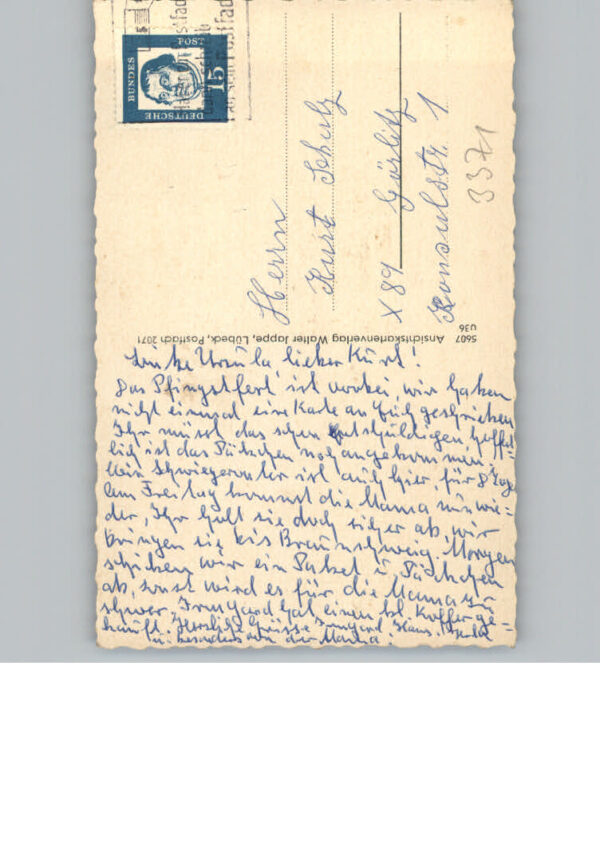 DEUTSCHE
BUNDES
POST
15
Herrn
Kurt Schulz
X 89 Görlitz
Konsulstr. 1
3371
5607 Ansichtskartenverlag Walter Jappe, Lübeck, Postfach 2071
u36
Liebe Ursula, lieber Kurt!
Das Pfingstfest ist vorbei, wir haben
nicht einmal eine Karte an Euch geschrieben
Ihr müsst das schon entschuldigen, hoffent-
lich ist das Päckchen noch angekommen.
Mein Schwiegervater ist auch hier, für 8 Tage
Am Freitag kommt die Mama nun wie-
der, Ihr holt sie doch sicher ab, wir
bringen sie bis Braunschweig. Morgen
schicken wir ein Paket u. Päckchen
ab, sonst wird es für die Mama zu
schwer. Irmgard hat einen Koffer ge-
kauft. Herzliche Grüsse Irmgard, Klaus
u. besonders von der Mama!